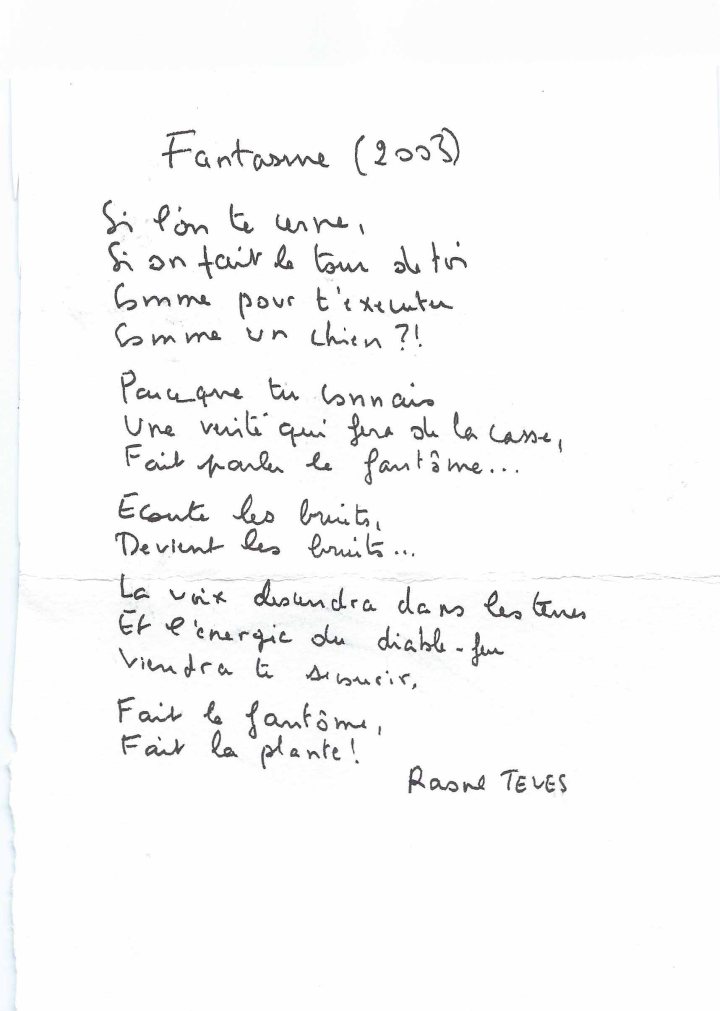 Fantasme (2003)
Si l'on te cerne,
Si on fait le tour de toi
Comme pour t'executer
Comme un chien ?!
Parce que tu connais
Une verité qui fera de la casse,
Fait parler le fantôme...
Ecoute les bruits,
Devient les bruits...
La voix descendra dans les terres
Et l'énergie du diable-feu
Viendra te secourir,
Fait le fantôme,
Fait la plante!
Rasne TEVES